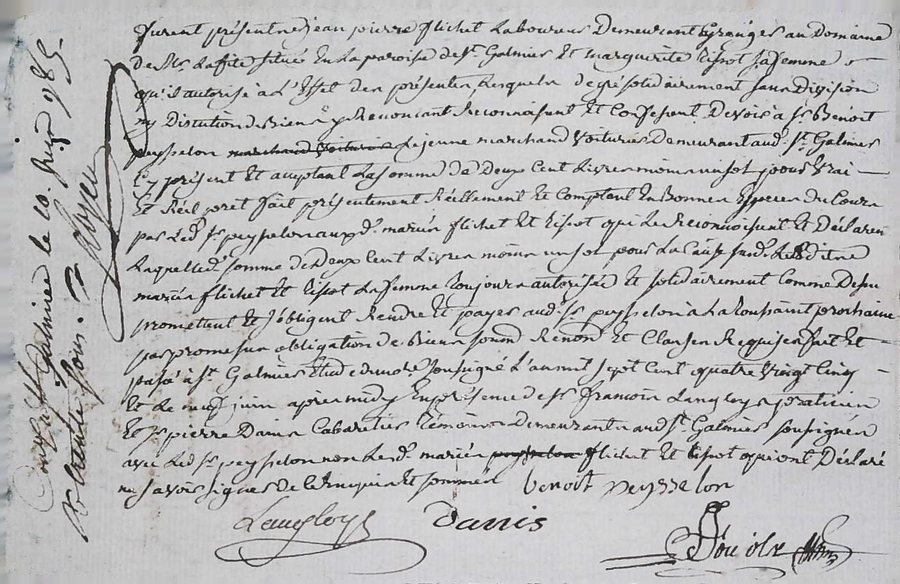 furent présentes jean pierre flichet Laboureur Demeurant Es granges au Domaine
de Mr Lafite située En La paroisse de St. Galmier Et marguerite tissot sa femme
qu'il autorise a L'Effet des présentes Lesquels de gré solidairement sans Division
ny Discution de Biens y Renoncant Reconnoissent Et Confessent Devoir a Sr Benoit
peysselon marchand voiturier Le jeune marchand voiturier Demeurant aud. St. Galmier
icy présent Et acceptant La somme de Deux Cent Livres moins un sol pour vrai
Et Réel pret fait présentement Réellement Et Comptant En Bonnes Especes du Cours
par Led. Sr peysselon auxd. mariés flichet Et tissot qui Le Reconnoissent Et Déclarent
Laquelle somme de Deux Cent Livres moins un sol pour La Cause susd. Lesdits
mariés flichet Et tissot La femme toujours autorisée Et solidairement Comme Dessus
promettent Et s'obligent Rendre Et payer aud. Sr peysselon a La toussaint prochaine
par promesse obligation de Biens soum. Renon. Et Clauses Requises fait Et
passé a St. Galmier Etude du no.re soussigné L'an mil sept Cent quatre vingt Cinq
Et Le neuf juin apres midy En présence de Sr francois Langloys praticien
Et Sr pierre Danis Cabaretier témoins Demeurants aud. St. Galmier soussignés
avec Led. Sr peysselon non Lesd. mariés peysselon flichet Et tissot qui ont Déclaré
ne savoir signer de Ce Enquis Et sommés benoit peysselon
Langloys Danis
Controllé a St Galmier le 10 juin 1785
R trente sous. Royer